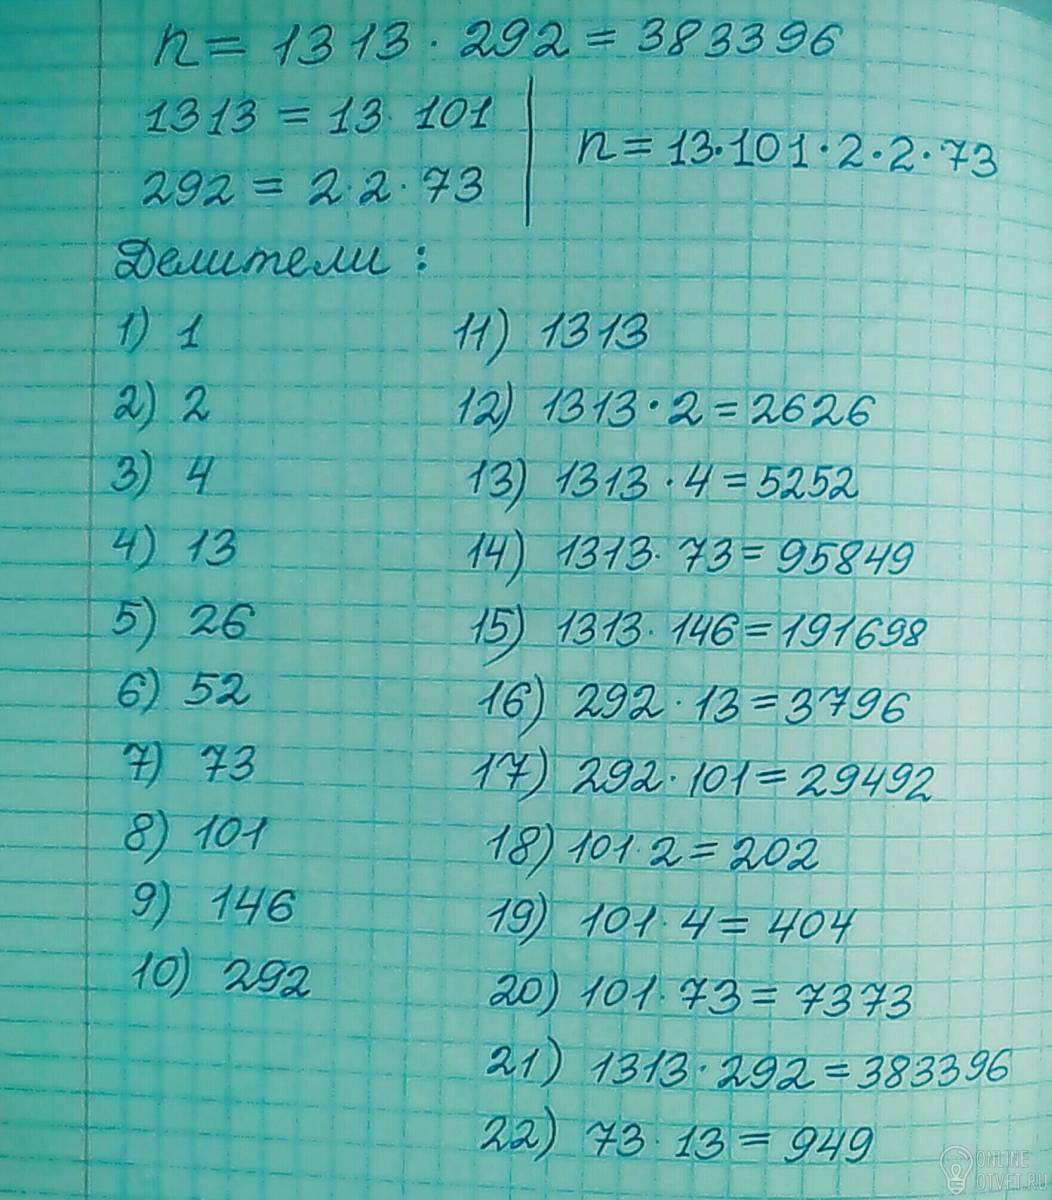 n = 1313 · 292 = 383396
1313 = 13 · 101
292 = 2 · 2 · 73
n = 13 · 101 · 2 · 2 · 73
Делители :
1) 1
2) 2
3) 4
4) 13
5) 26
6) 52
7) 73
8) 101
9) 146
10) 292
11) 1313
12) 1313 · 2 = 2626
13) 1313 · 4 = 5252
14) 1313 · 73 = 95849
15) 1313 · 146 = 191698
16) 292 · 13 = 3796
17) 292 · 101 = 29492
18) 101 · 2 = 202
19) 101 · 4 = 404
20) 101 · 73 = 7373
21) 1313 · 292 = 383396
22) 73 · 13 = 949
ONLINE
OTVET.RU